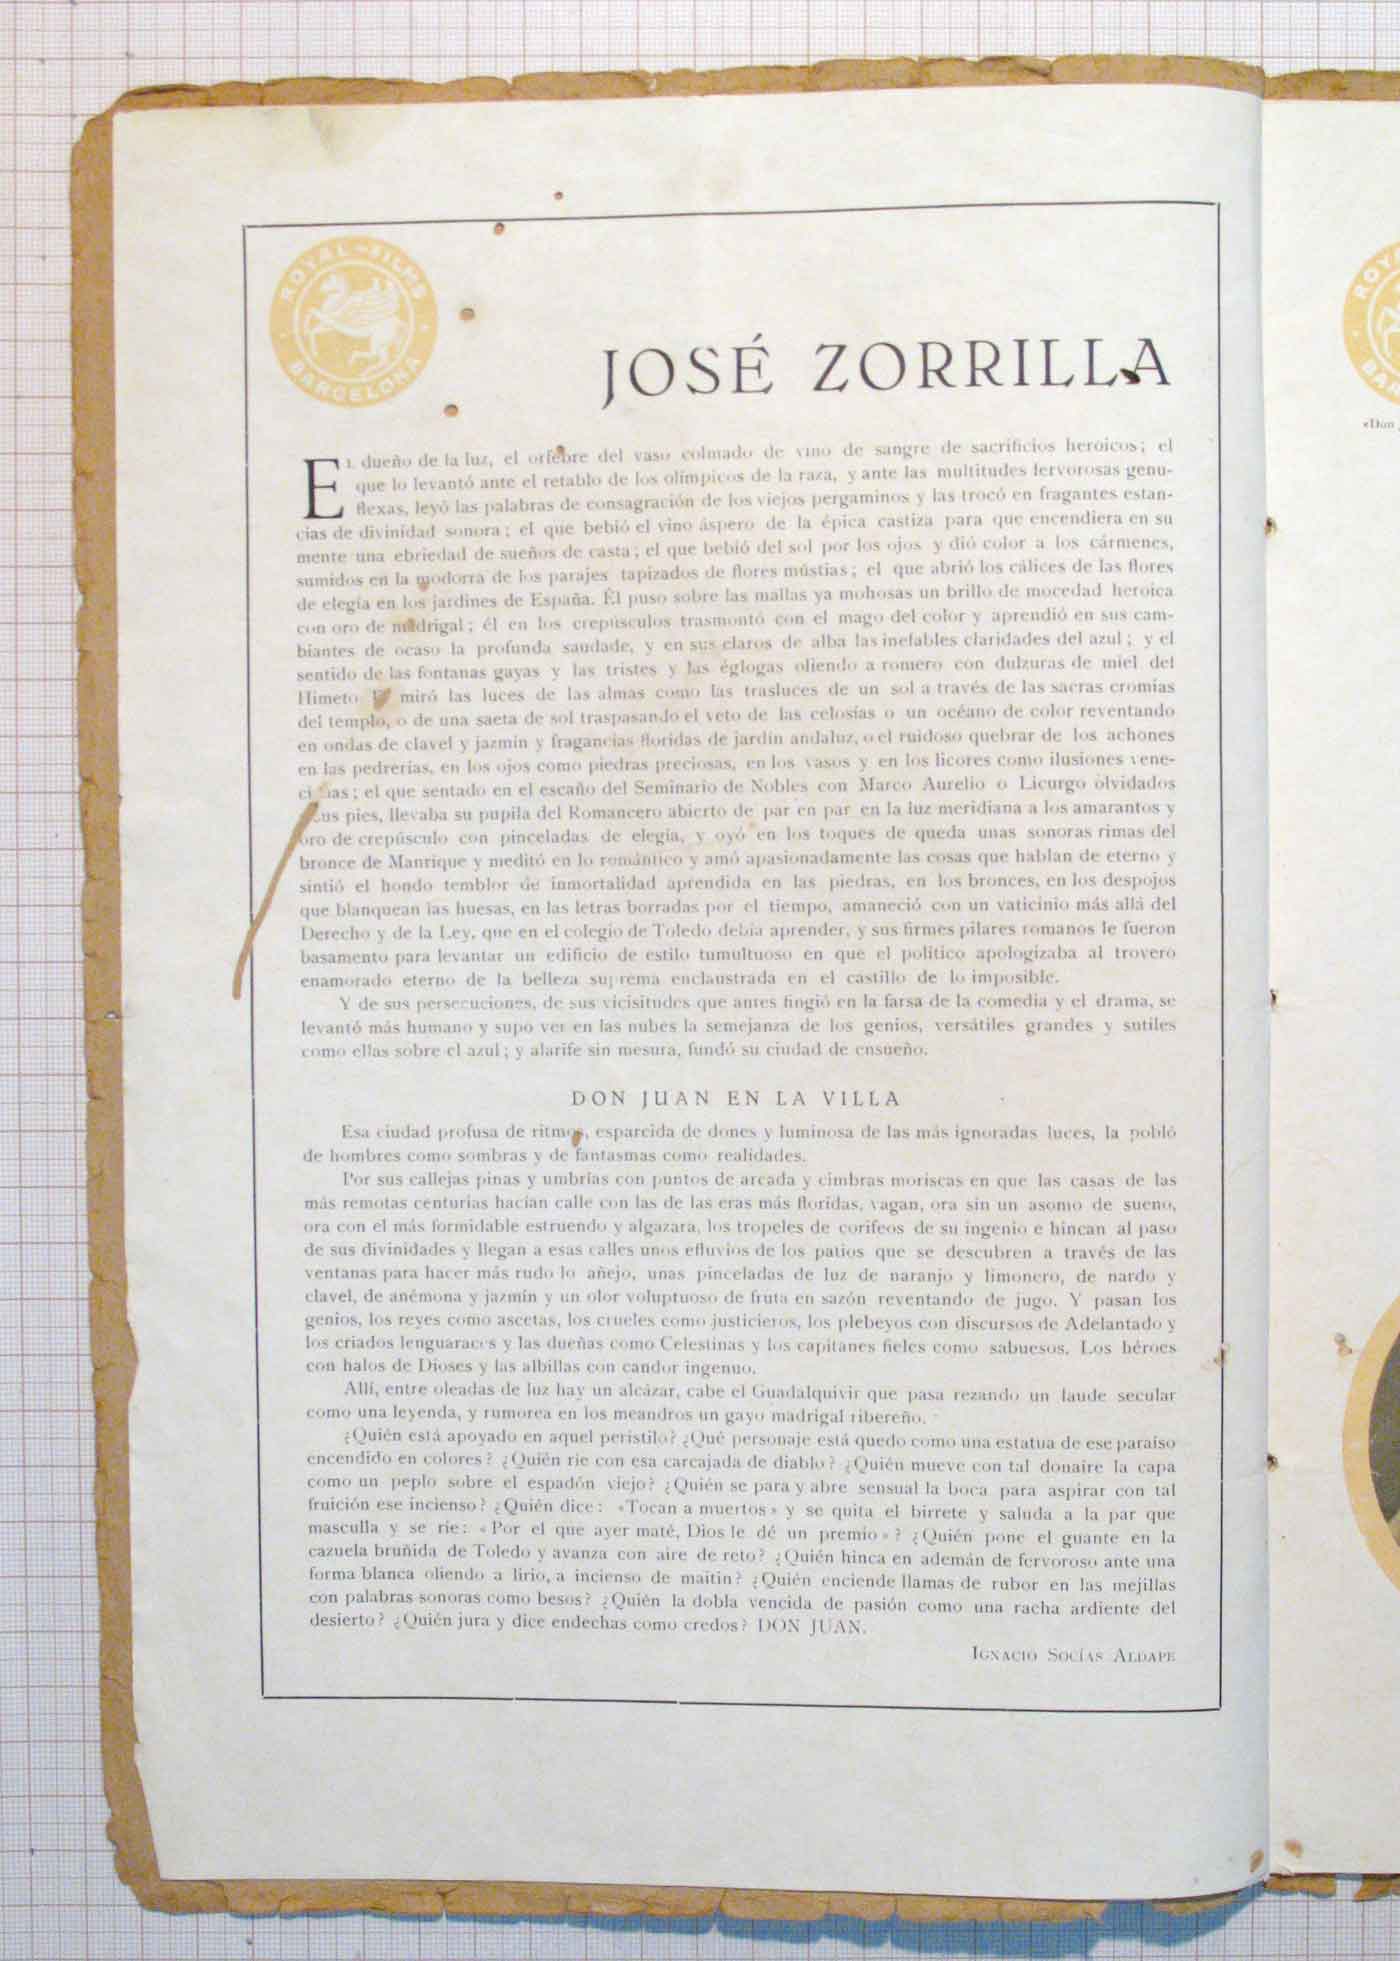 ROYAL-FILMS
BARCELONA
JOSÉ ZORRILLA
El dueño de la luz, el orfebre del vaso colmado de vino de sangre de sacrificios heroicos; el
que lo levantó ante el retablo de los olímpicos de la raza, y ante las multitudes fervorosas genu-
flexas, leyó las palabras de consagración de los viejos pergaminos y las trocó en fragantes estan-
cias de divinidad sonora; el que bebió el vino áspero de la épica castiza para que encendiera en su
mente una ebriedad de sueños de casta; el que bebió del sol por los ojos y dió color a los cármenes,
sumidos en la modorra de los parajes tapizados de flores mústias; el que abrió los cálices de las flores
de elegía en los jardines de España. Él puso sobre las mallas ya mohosas un brillo de mocedad heroica
con oro de madrigal; él en los crepúsculos trasmontó con el mago del color y aprendió en sus cam-
biantes de ocaso la profunda saudade, y en sus claros de alba las inefables claridades del azul; y el
sentido de las fontanas gayas y las tristes y las églogas oliendo a romero con dulzuras de miel del
Himeto miró las luces de las almas como las trasluces de un sol a través de las sacras cromías
del templo, o de una saeta de sol traspasando el veto de las celosías o un océano de color reventando
en ondas de clavel y jazmín y fragancias floridas de jardín andaluz, o el ruidoso quebrar de los achones
en las pedrerías, en los ojos como piedras preciosas, en los vasos y en los licores como ilusiones vene-
cianas; el que sentado en el escaño del Seminario de Nobles con Marco Aurelio o Licurgo olvidados
sus pies, llevaba su pupila del Romancero abierto de par en par en la luz meridiana a los amarantos y
oro de crepúsculo con pinceladas de elegía, y oyó en los toques de queda unas sonoras rimas del
bronce de Manrique y meditó en lo romántico y amó apasionadamente las cosas que hablan de eterno y
sintió el hondo temblor de inmortalidad aprendida en las piedras, en los bronces, en los despojos
que blanquean las huesas, en las letras borradas por el tiempo, amaneció con un vaticinio más allá del
Derecho y de la Ley, que en el colegio de Toledo debía aprender, y sus firmes pilares romanos le fueron
basamento para levantar un edificio de estilo tumultuoso en que el político apologizaba al trovero
enamorado eterno de la belleza suprema enclaustrada en el castillo de lo imposible.
Y de sus persecuciones, de sus vicisitudes que antes fingió en la farsa de la comedia y el drama, se
levantó más humano y supo ver en las nubes la semejanza de los genios, versátiles grandes y sutiles
como ellas sobre el azul; y alarife sin mesura, fundó su ciudad de ensueño.
DON JUAN EN LA VILLA
Esa ciudad profusa de ritmos, esparcida de dones y luminosa de las más ignoradas luces, la pobló
de hombres como sombras y de fantasmas como realidades.
Por sus callejas pinas y umbrías con puntos de arcada y cimbras moriscas en que las casas de las
más remotas centurias hacían calle con las de las eras más floridas, vagan, ora sin un asomo de sueno,
ora con el más formidable estruendo y algazara, los tropeles de corifeos de su ingenio e hincan al paso
de sus divinidades y llegan a esas calles unos efluvios de los patios que se descubren a través de las
ventanas para hacer más rudo lo añejo, unas pinceladas de luz de naranjo y limonero, de nardo y
clavel, de anémona y jazmín y un olor voluptuoso de fruta en sazón reventando de jugo. Y pasan los
genios, los reyes como ascetas, los crueles como justicieros, los plebeyos con discursos de Adelantado y
los criados lenguaraces y las dueñas como Celestinas y los capitanes fieles como sabuesos. Los héroes
con halos de Dioses y las albillas con candor ingenuo.
Allí, entre oleadas de luz hay un alcázar, cabe el Guadalquivir que pasa rezando un laude secular
como una leyenda, y rumorea en los meandros un gayo madrigal ribereño.
¿Quién está apoyado en aquel peristilo? ¿Qué personaje está quedo como una estatua de ese paraíso
encendido en colores? ¿Quién ríe con esa carcajada de diablo? ¿Quién mueve con tal donaire la capa
como un peplo sobre el espadón viejo? ¿Quién se para y abre sensual la boca para aspirar con tal
fruición ese incienso? ¿Quién dice: «Tocan a muertos» y se quita el birrete y saluda a la par que
masculla y se ríe: «Por el que ayer maté, Dios le dé un premio»? ¿Quién pone el guante en la
cazuela bruñida de Toledo y avanza con aire de reto? ¿Quién hinca en ademán de fervoroso ante una
forma blanca oliendo a lirio, a incienso de maitín? ¿Quién enciende llamas de rubor en las mejillas
con palabras sonoras como besos? ¿Quién la dobla vencida de pasión como una racha ardiente del
desierto? ¿Quién jura y dice endechas como credos? DON JUAN.
IGNACIO SOCÍAS ALDAPE
«Don